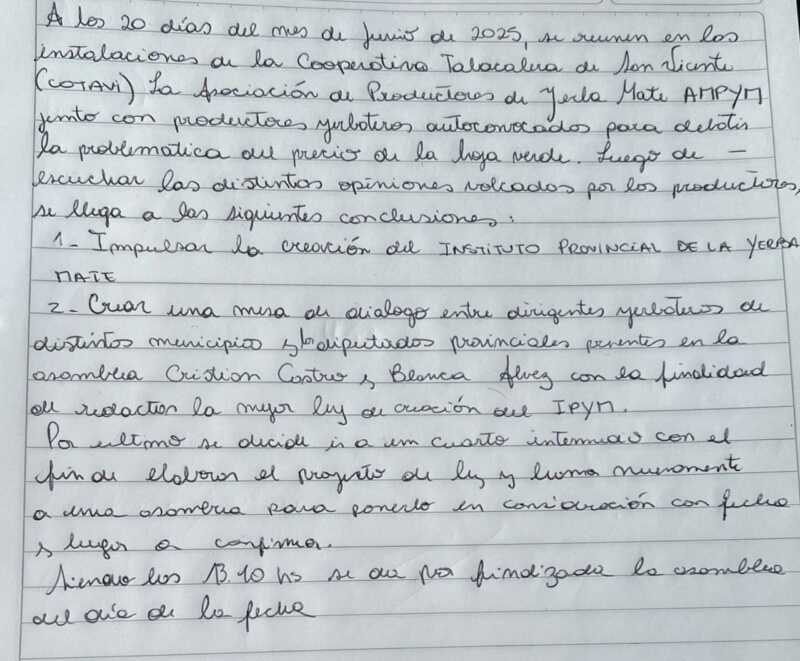 A los 20 días del mes de Junio de 2025, se reunen en las
instalaciones de la Cooperativa Tabacalera de San Vicente
(COTAVI) La Asociación de Productores de Yerba Mate AMPYM
junto con productores yerbateros autoconvocados para debatir
la problematica del precio de la hoja verde. Luego de -
escuchar las distintas opiniones volcadas por los productores,
se llega a las siguientes conclusiones:
1- Impulsar la creación del INSTITUTO PROVINCIAL DE LA YERBA
MATE
2- Crear una mesa de dialogo entre dirigentes yerbateros de
distintos municipios y los diputados provinciales presentes en la
asamblea Cristian Castro y Blanca Alvez con la finalidad
de redactar la mejor ley de creación del IPYM.
Por ultimo se decide ir a un cuarto intermedio con el
fin de elaborar el proyecto de ley y llamar nuevamente
a una asamblea para ponerlo en consideración con fecha
y lugar a confirmar.
Siendo las 13.10 hs se da por finalizada la asamblea
del día de la fecha